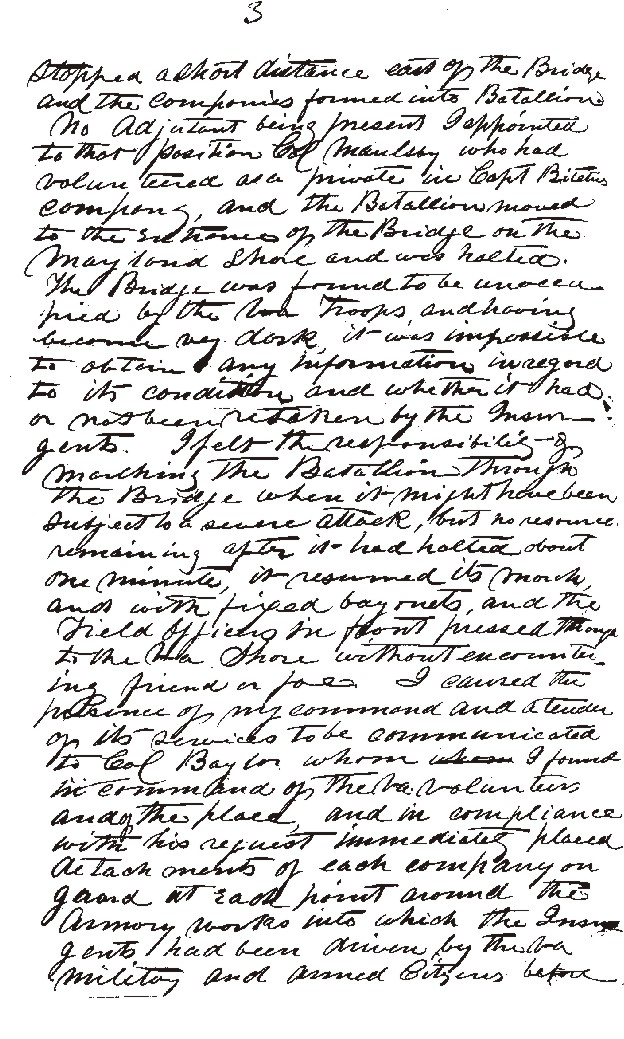 3
stopped a short distance east of the Bridge
and the companies formed into Batallion
No Adjutant being present I appointed
to that position Col Maulsby who had
volunteered as a private in Capt
company, and the Batallion moved
to the entrance of the Bridge on the
Maryland Shore and was halted.
The Bridge was found to be unoccu
pied by the Va Troops and having
become very dark, it was impossible
to obtain any information in regard
to its condition and whether it had
or not been retaken by the Insur
gents. I felt the responsibility of
marching the Batallion through
the Bridge when it might have been
subject to a severe attack, but no resource
remaining after it had halted about
one minute, it resumed its march,
and with fixed bayonets, and the
Field officers in front pressed through
to the Va Shore without encounter
ing friend or foe. I caused the
presence of my command and a tender
of its services to be communicated
to Col Baylor whom whom I found
in command of the Va volunteers
and of the place, and in compliance
with his request immediately placed
detachments of each company on
guard at each point around the
Armory works into which the Insur
gents had been driven by the Va
military and armed Citizens before